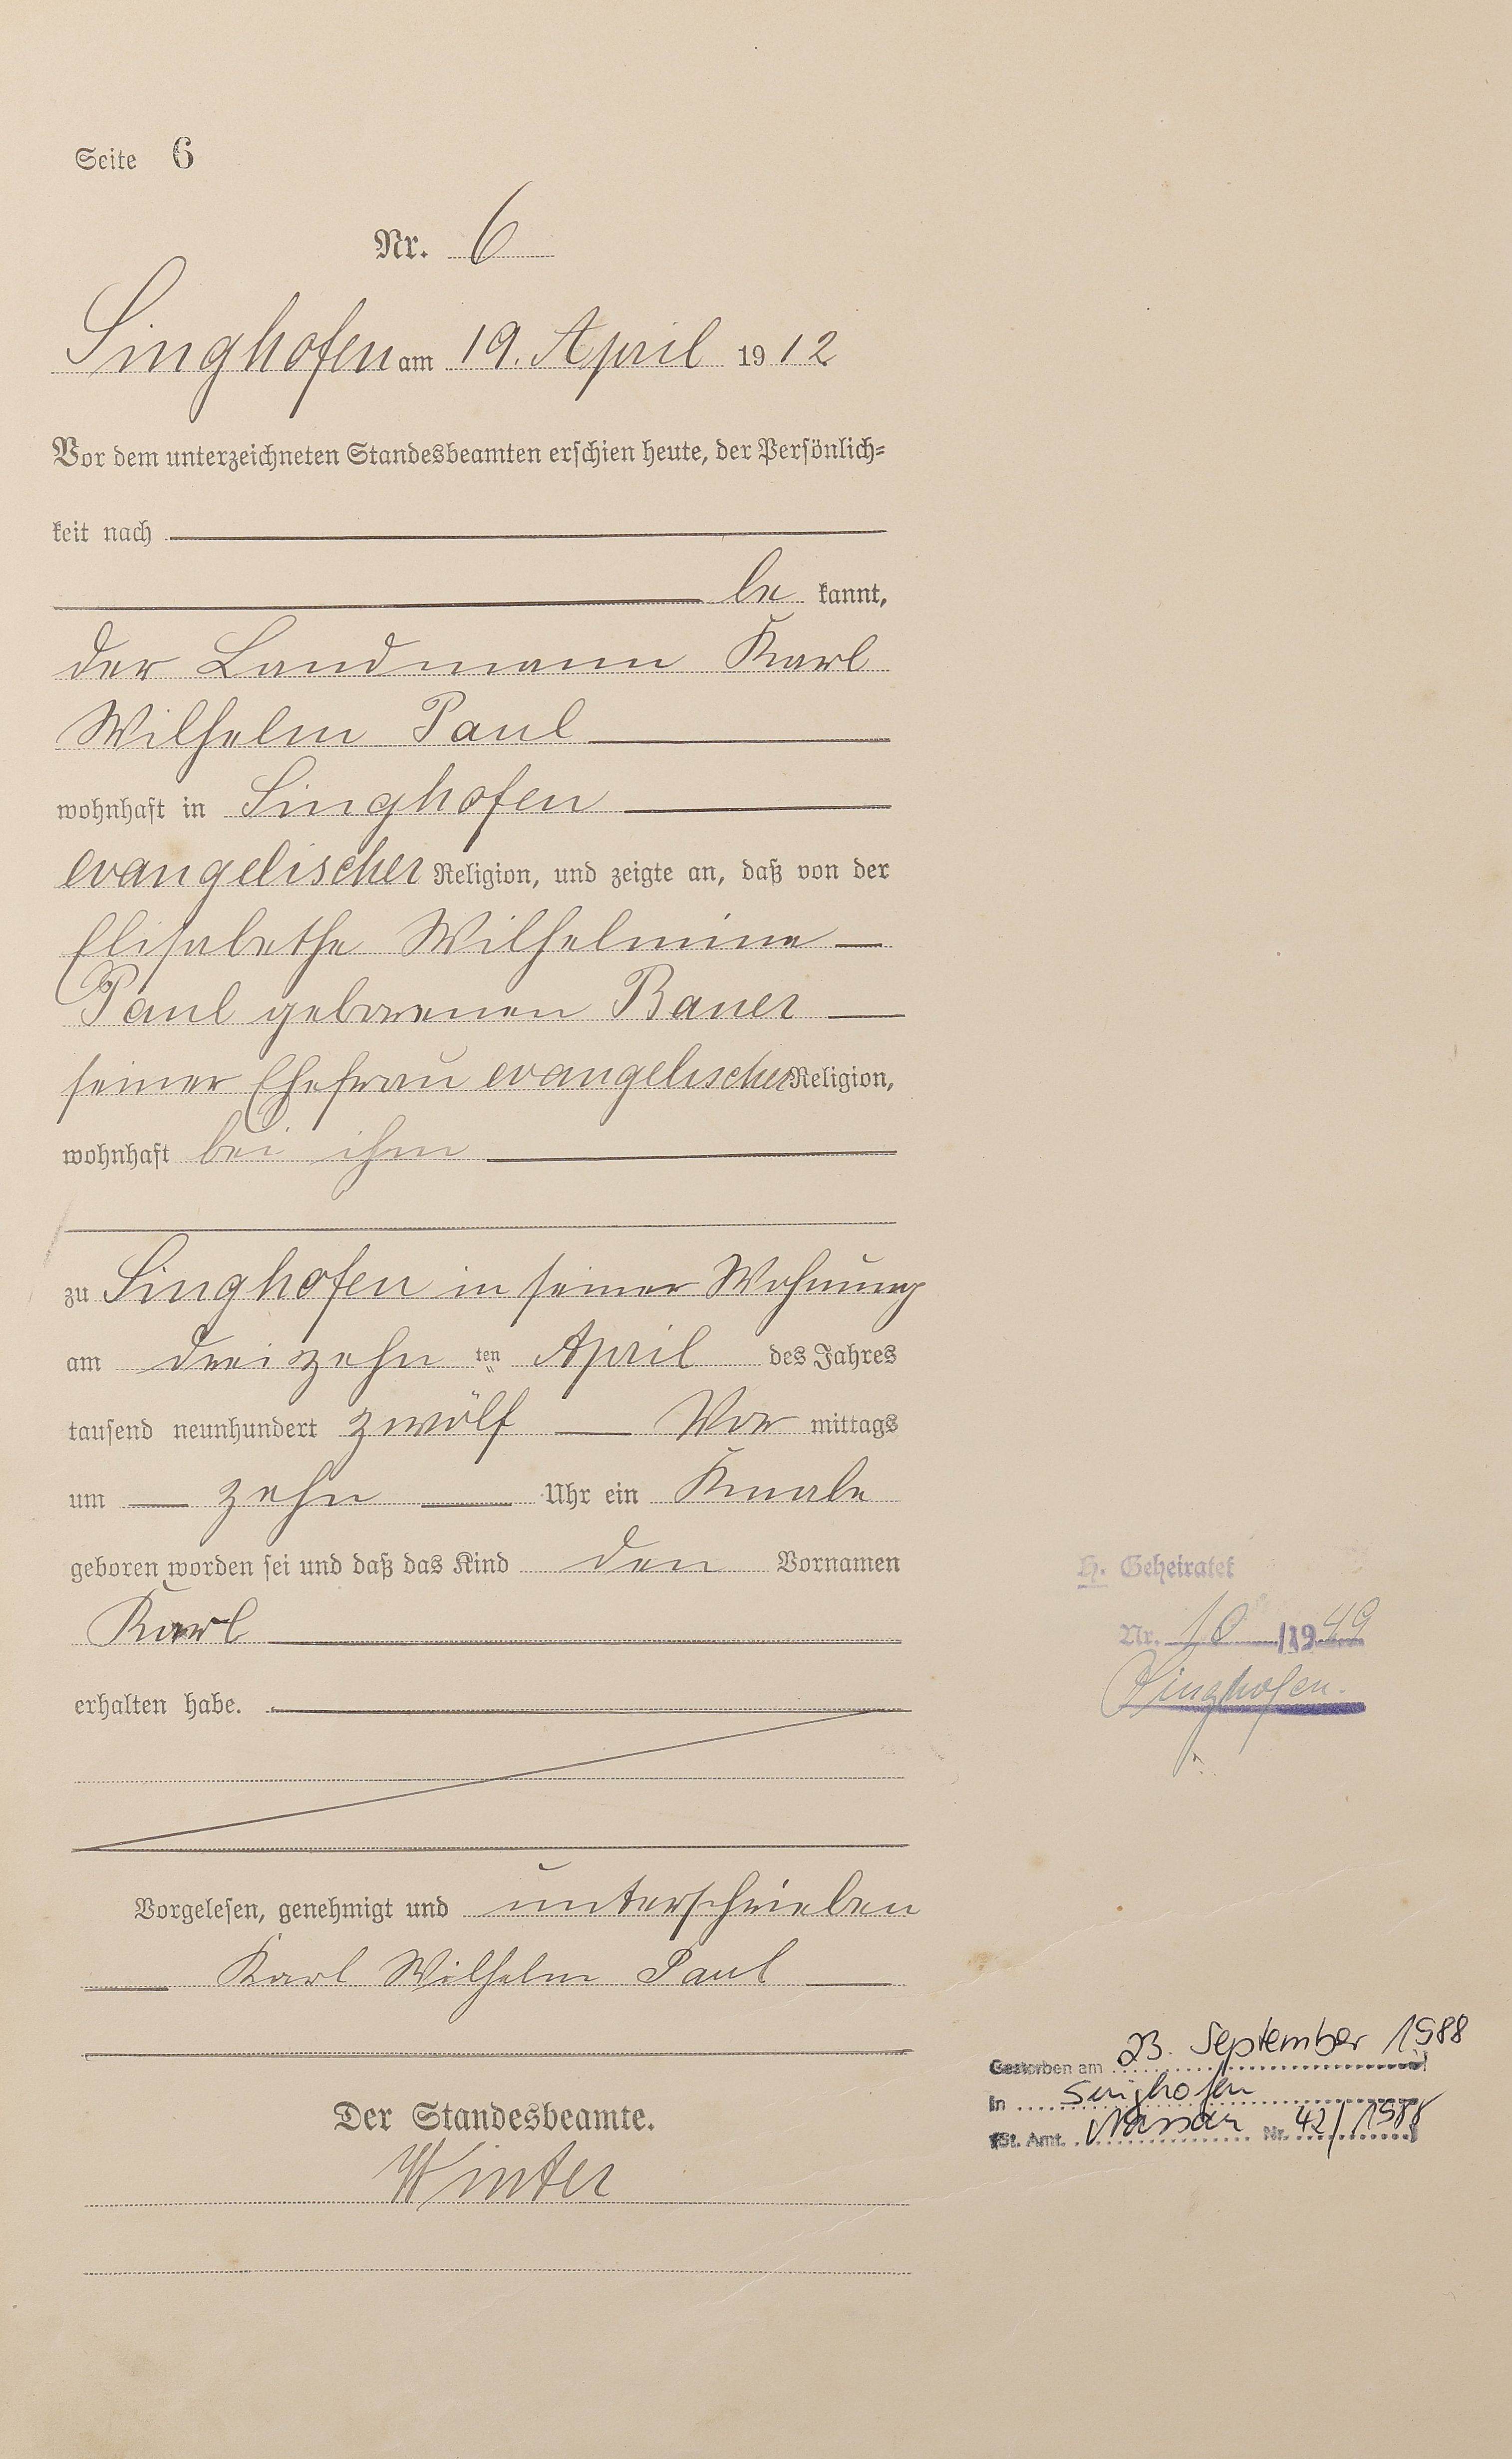 Seite 6
Nr. 6
Singhofen am 19. April 1912
Vor dem unterzeichneten Standesbeamten erschien heute, der Persönlich=
keit nach
be kannt,
der Landmann Karl
Wilhelm Paul
wohnhaft in Singhofen
evangelischer Religion, und zeigte an, daß von der
Elisabethe Wilhelmine
Paul geborenen Bauer
seiner Ehefrau evangelischer Religion,
wohnhaft bei ihm
zu Singhofen in seiner Wohnung
am dreizehn ten April des Jahres
tausend neunhundert zwölf Vor mittags
um zehn Uhr ein Knabe
geboren worden sei und daß das Kind den Vornamen
Karl
erhalten habe.
Vorgelesen, genehmigt und unterschrieben
Karl Wilhelm Paul
Der Standesbeamte.
Winter
H. Geheiratet
Nr. 10 /1949
Singhofen.
Gestorben am 23. September 1988
in Singhofen
St. Amt. Nassau Nr. 42/1988